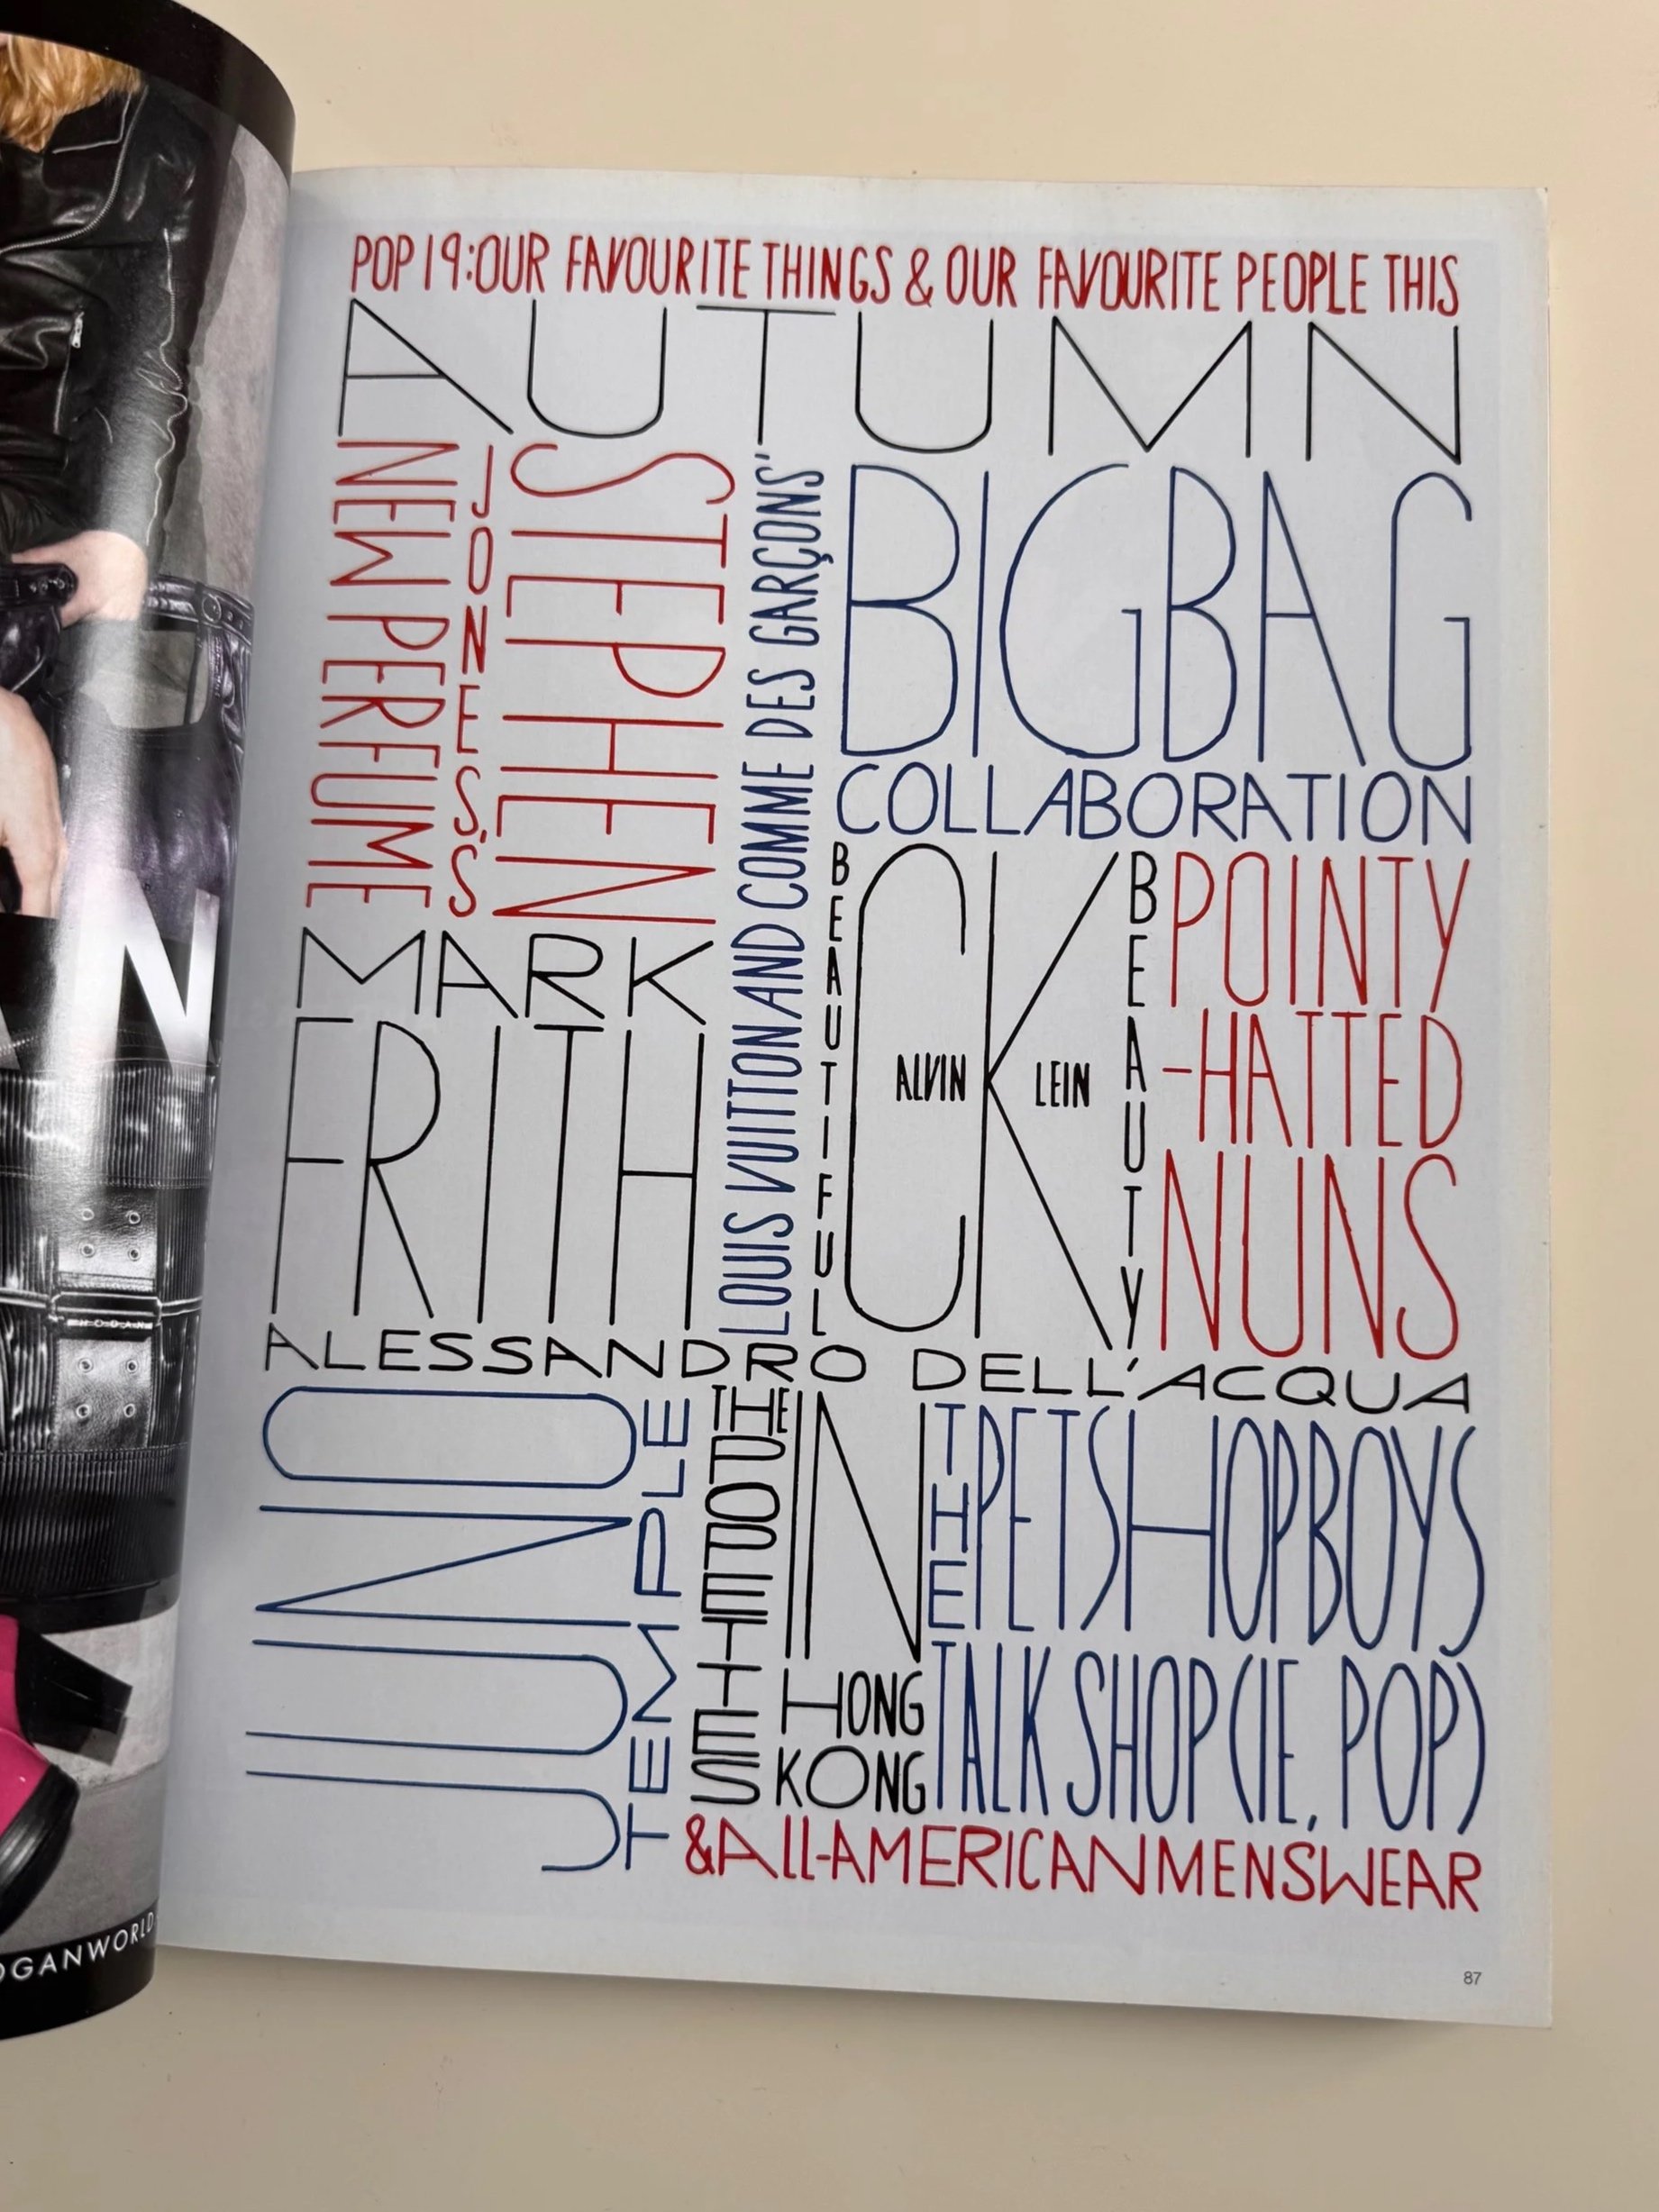 POP 19: OUR FAVOURITE THINGS & OUR FAVOURITE PEOPLE THIS
AUTUMN
STEPHEN
JONES'S
NEW PERFUME
LOUIS VUITTON AND COMME DES GARÇONS'
BIG BAG
COLLABORATION
MARK
FRITH
BEAUTIFUL
CK
ALVIN
LEIN
BEAUTY
POINTY
-HATTED
NUNS
ALESSANDRO DELL'ACQUA
JUNO
TEMPLE
THE
POPETTES
IN
HONG
KONG
THE
PET SHOP BOYS
TALK SHOP (IE, POP)
& ALL-AMERICAN MENSWEAR
87
N
HOGAN
OGANWORLD